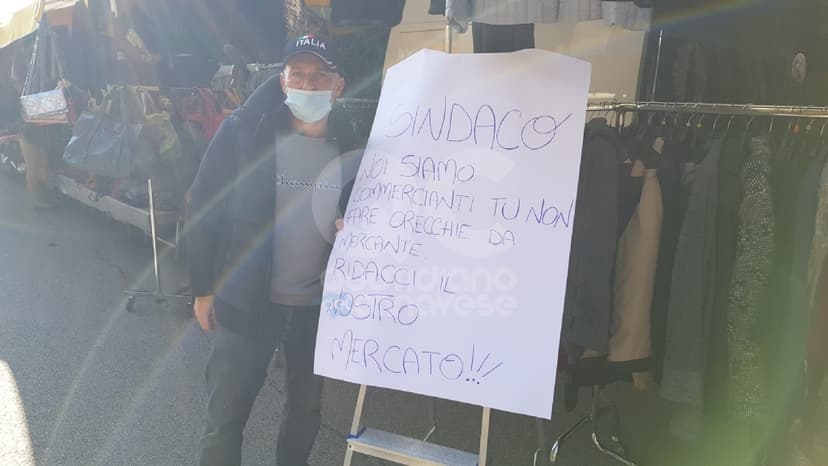 ITALIA
Champion
SINDACO
NOI SIAMO
COMMERCIANTI TU NON
FARE ORECCHIE DA
MERCANTE
RIDACCI IL
NOSTRO
MERCATO!!!
QC
quotidiano
canavese